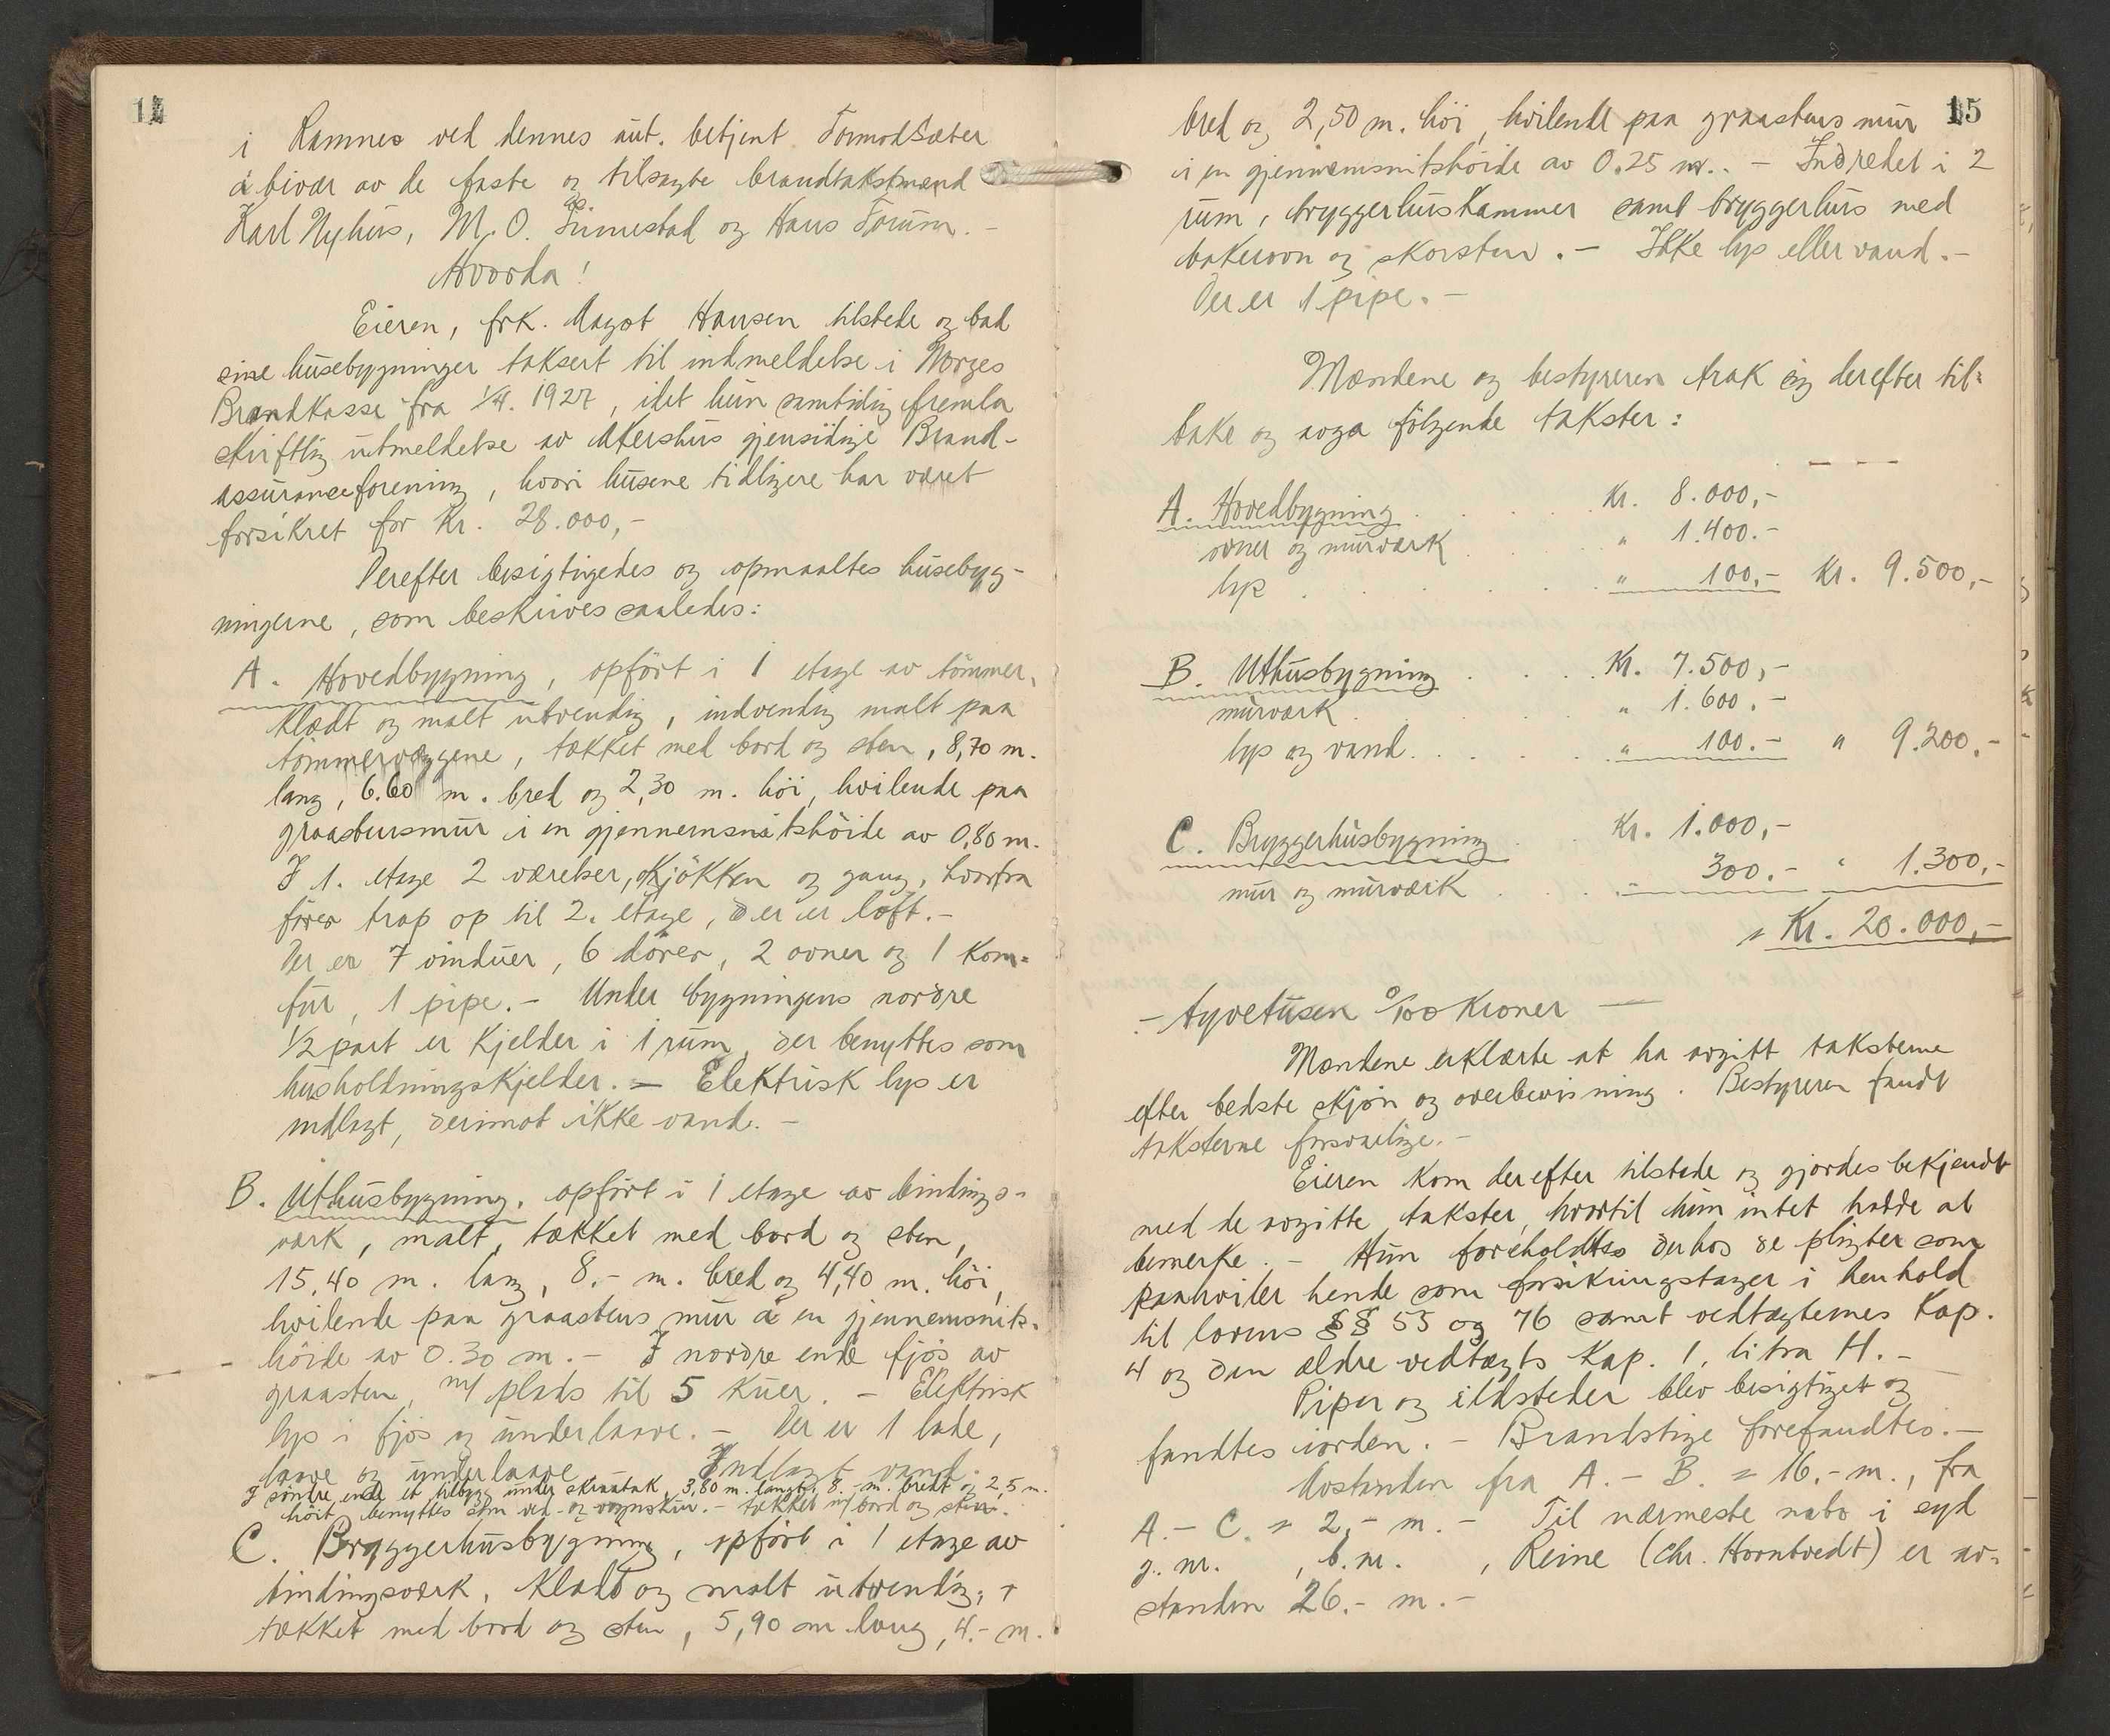 14
i Ramnes ved dennes aut. betjent Tormod Sæter
å bivær av de faste og tilsagte brandtakstmænd
Karl Nyhus, M. O. Linnestad og Hans Forum. -
Hvorda!
Eieren, frk. Magot Hansen tilstede og bad
sine husebygninger taksert til indmeldelse i Norges
Brandkasse fra 1/4. 1927, idet hun samtidig fremla
skriftlig utmeldelse av Akershus gjensidige Brand-
assuranceforening, hvori husene tidligere har været
forsikret for Kr. 28.000,-
Derefter besigtigedes og opmaaltes husebyg-
ningerne, som beskrives saaledes:
A. Hovedbygning, opført i 1 etage av tømmer,
klædt og malt utvendig, indvendig malt paa
tømmervæggene, tækket med bord og sten, 8,70 m.
lang, 6.60 m. bred og 2,30 m. höi, hvilende paa
graastensmur i en gjennemsnitshöide av 0,80 m.
I 1. etage 2 værelser, kjökken og gang, hvorfra
förer trap op til 2. etage, der er loft. -
Der er 7 vinduer, 6 dörer, 2 ovner og 1 kom-
fur, 1 pipe. - Under bygningens nordre
1/2 part er kjelder i 1 rum, der benyttes som
husholdningskjelder. - Elektrisk lys er
indlagt, derimot ikke vand. -
B. Uthusbygning, opfört i 1 etage av bindings-
værk, malt, tækket med bord og sten,
15,40 m. lang, 8.- m. bred og 4,40 m. höi,
hvilende paa graastens mur i en gjennemsnits-
höide av 0.30 m. - I nordre ende fjös av
graasten, m/ plads til 5 kuer. - Elektrisk
lys i fjös og underlaave. - Der er 1 lade,
laave og underlaave. Indlagt vand.
I söndre ende et tilbygg under skraatak, 3,80 m. langt, 8.- m. bredt og 2,5 m.
höit, benyttes som ved- og vognskur. - tækket m/ bord og sten.
C. Bryggerhusbygning, opfört i 1 etage av
bindingsværk, klædt og malt utvendig,
tækket med bord og sten, 5,90 m lang, 4.- m.
15
bred og 2,50 m. höi, hvilende paa graastens mur
i en gjennemsnitshöide av 0.25 m.. - Indredet i 2
rum, bryggerhuskammer samt bryggerhus med
bakerovn og skorsten. - Ikke lys eller vand. -
Der er 1 pipe. -
Mændene og bestyreren trak sig derefter til-
bake og avga fölgende takster:
A. Hovedbygning . . . . Kr. 8.000,-
ovner og murværk . . . " 1.400.-
lys . . . . . . " 100,- Kr. 9.500,-
B. Uthusbygning . . . . Kr. 7.500,-
murværk . . . . " 1.600.-
lys og vand . . . . . " 100.- " 9.200,-
C. Bryggerhusbygning . . Kr. 1.000,-
mur og murværk . . . . 300.- " 1.300,-
= Kr. 20.000,-
- tyvetusen 0/100 Kroner -
Mændene erklærte at ha avgitt taksterne
efter bedste skjön og overbevisning. Bestyreren fandt
taksterne forsvarlige. -
Eieren kom derefter tilstede og gjordes bekjendt
med de avgitte takster, hvortil hun intet hadde at
bemerke. - Hun foreholdtes derhos de pligter som
paahviler hende som forsikringstager i henhold
til lovens §§ 55 og 76 samt vedtægternes Kap.
4 og den ældre vedtægts Kap. 1, litra H. -
Piper og ildsteder blev besigtiget og
fandtes iorden. - Brandstige forefandtes. -
Avstanden fra A. - B. = 16.- m., fra
A. - C. = 2,- m. - Til nærmeste nabo i syd
g. nr. , b. nr. , Reine (Chr. Horntvedt) er av-
standen 26.- m. -